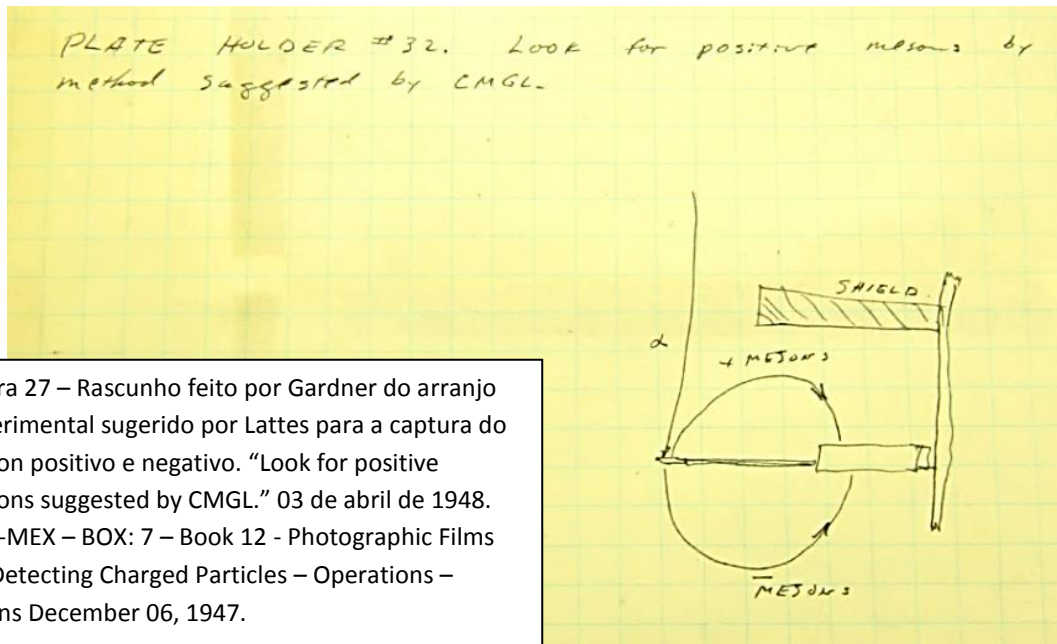 PLATE HOLDER #32. Look for positive mesons by
method suggested by CMGL.
SHIELD
α
+ MESONS
− MESONS
ra 27 – Rascunho feito por Gardner do arranjo
erimental sugerido por Lattes para a captura do
on positivo e negativo. “Look for positive
ons suggested by CMGL.” 03 de abril de 1948.
-MEX – BOX: 7 – Book 12 - Photographic Films
Detecting Charged Particles – Operations –
ns December 06, 1947.